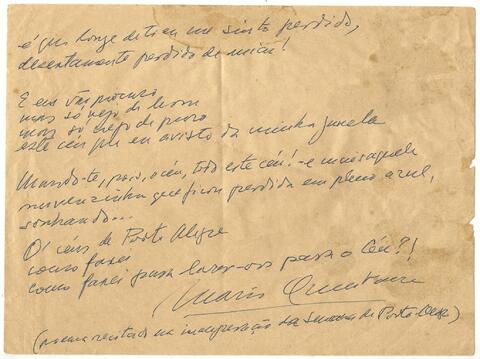 é que longe de ti eu me sinto perdido,
desertamente perdido de mim!
E em vão procuro
mas só vejo de bom
mas só vejo de puro
este céu que eu avisto da minha janela
Mando-te, pois, o céu, todo este céu! e mais aquela
nuvenzinha que ficou perdida em pleno azul,
sonhando...
O céus de Porto Alegre
como farei
como farei para levar-vos para o Céu?!
Mario Quintana
(poema recitado na inauguração da Semana de Porto Alegre)